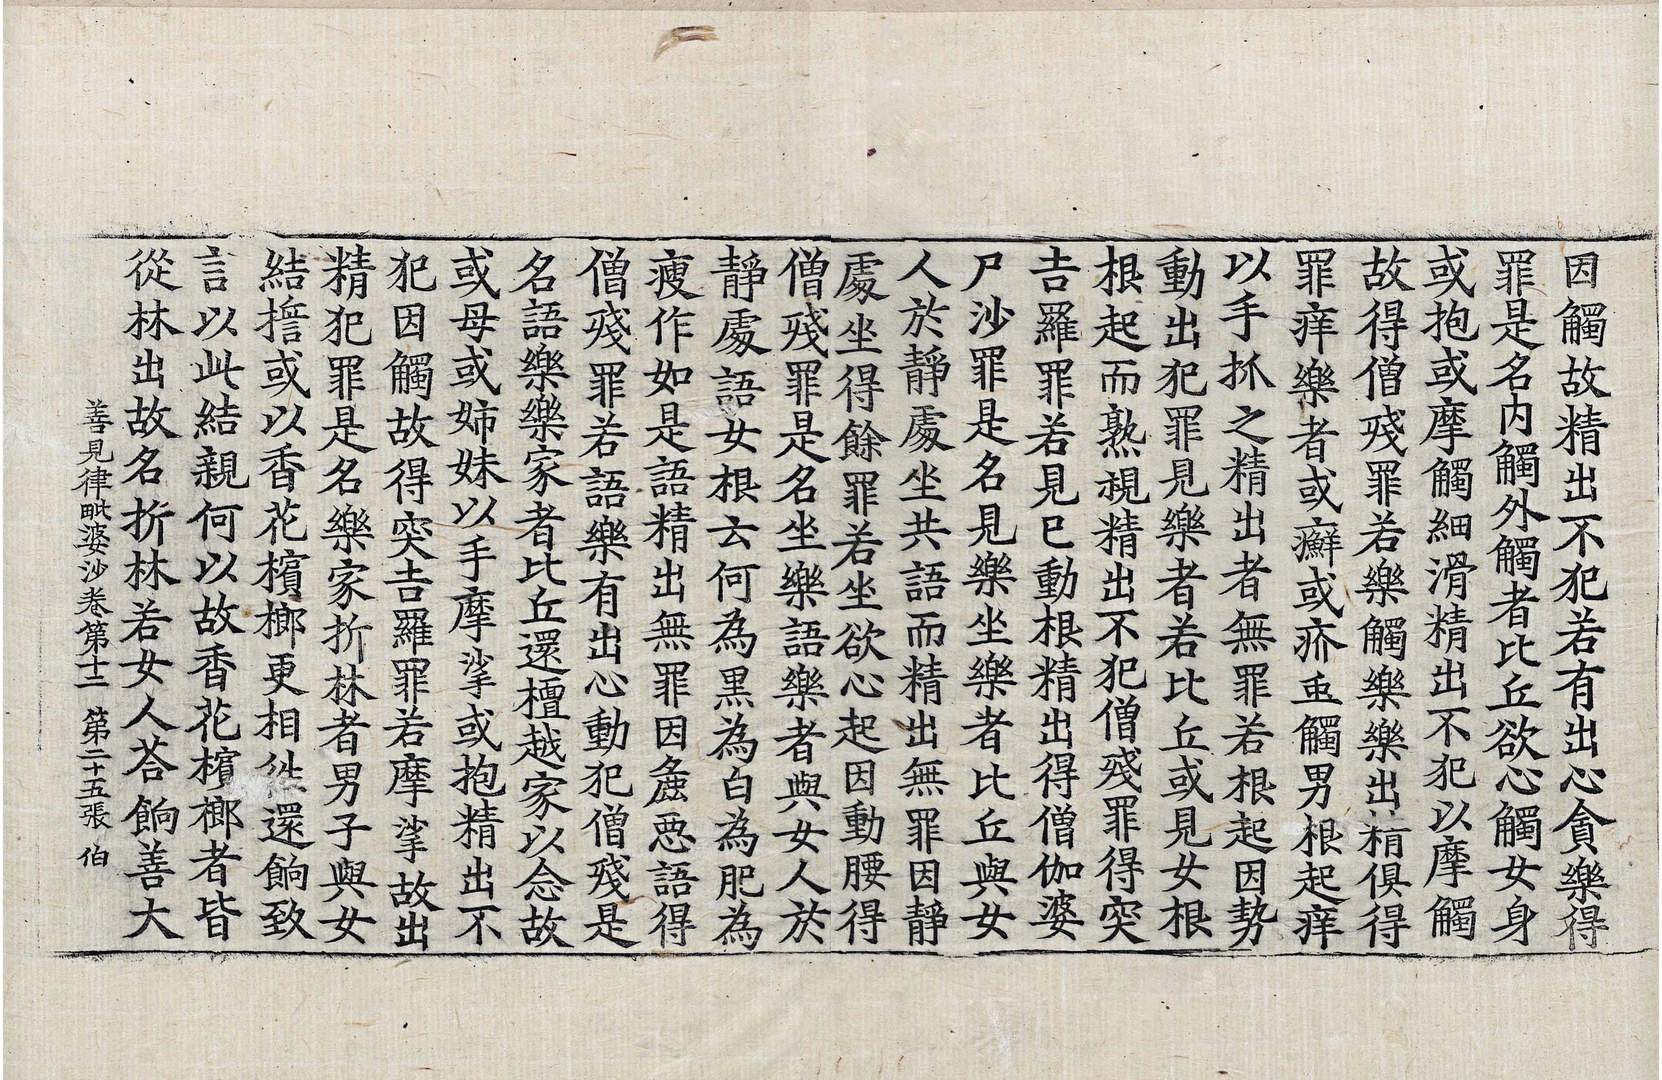 因觸故精出不犯若有出心貪樂得
罪是名内觸外觸者比丘欲心觸女身
或抱或摩觸細滑精出不犯以摩觸
故得僧殘罪若樂觸樂樂出精俱得
罪痒樂者或癬或疥䖝觸男根起痒
以手抓之精出者無罪若根起因勢
動出犯罪見樂者若比丘或見女根
根起而熟視精出不犯僧殘罪得突
吉羅罪若見已動根精出得僧伽婆
尸沙罪是名見樂坐樂者比丘與女
人於靜處坐共語而精出無罪因靜
處坐得餘罪若坐欲心起因動腰得
僧殘罪是名坐樂語樂者與女人於
靜處語女根云何為黑為白為肥為
瘦作如是語精出無罪因麁惡語得
僧殘罪若語樂有出心動犯僧殘是
名語樂樂家者比丘還檀越家以念故
或母或姉妹以手摩挲或抱精出不
犯因觸故得突吉羅罪若摩挲故出
精犯罪是名樂家折林者男子與女
結誓或以香花檳榔更相還餉致
言以此結親何以故香花檳榔者皆
從林出故名折林若女人荅餉善大
善見律毗婆沙卷第十二 第二十五張 伯